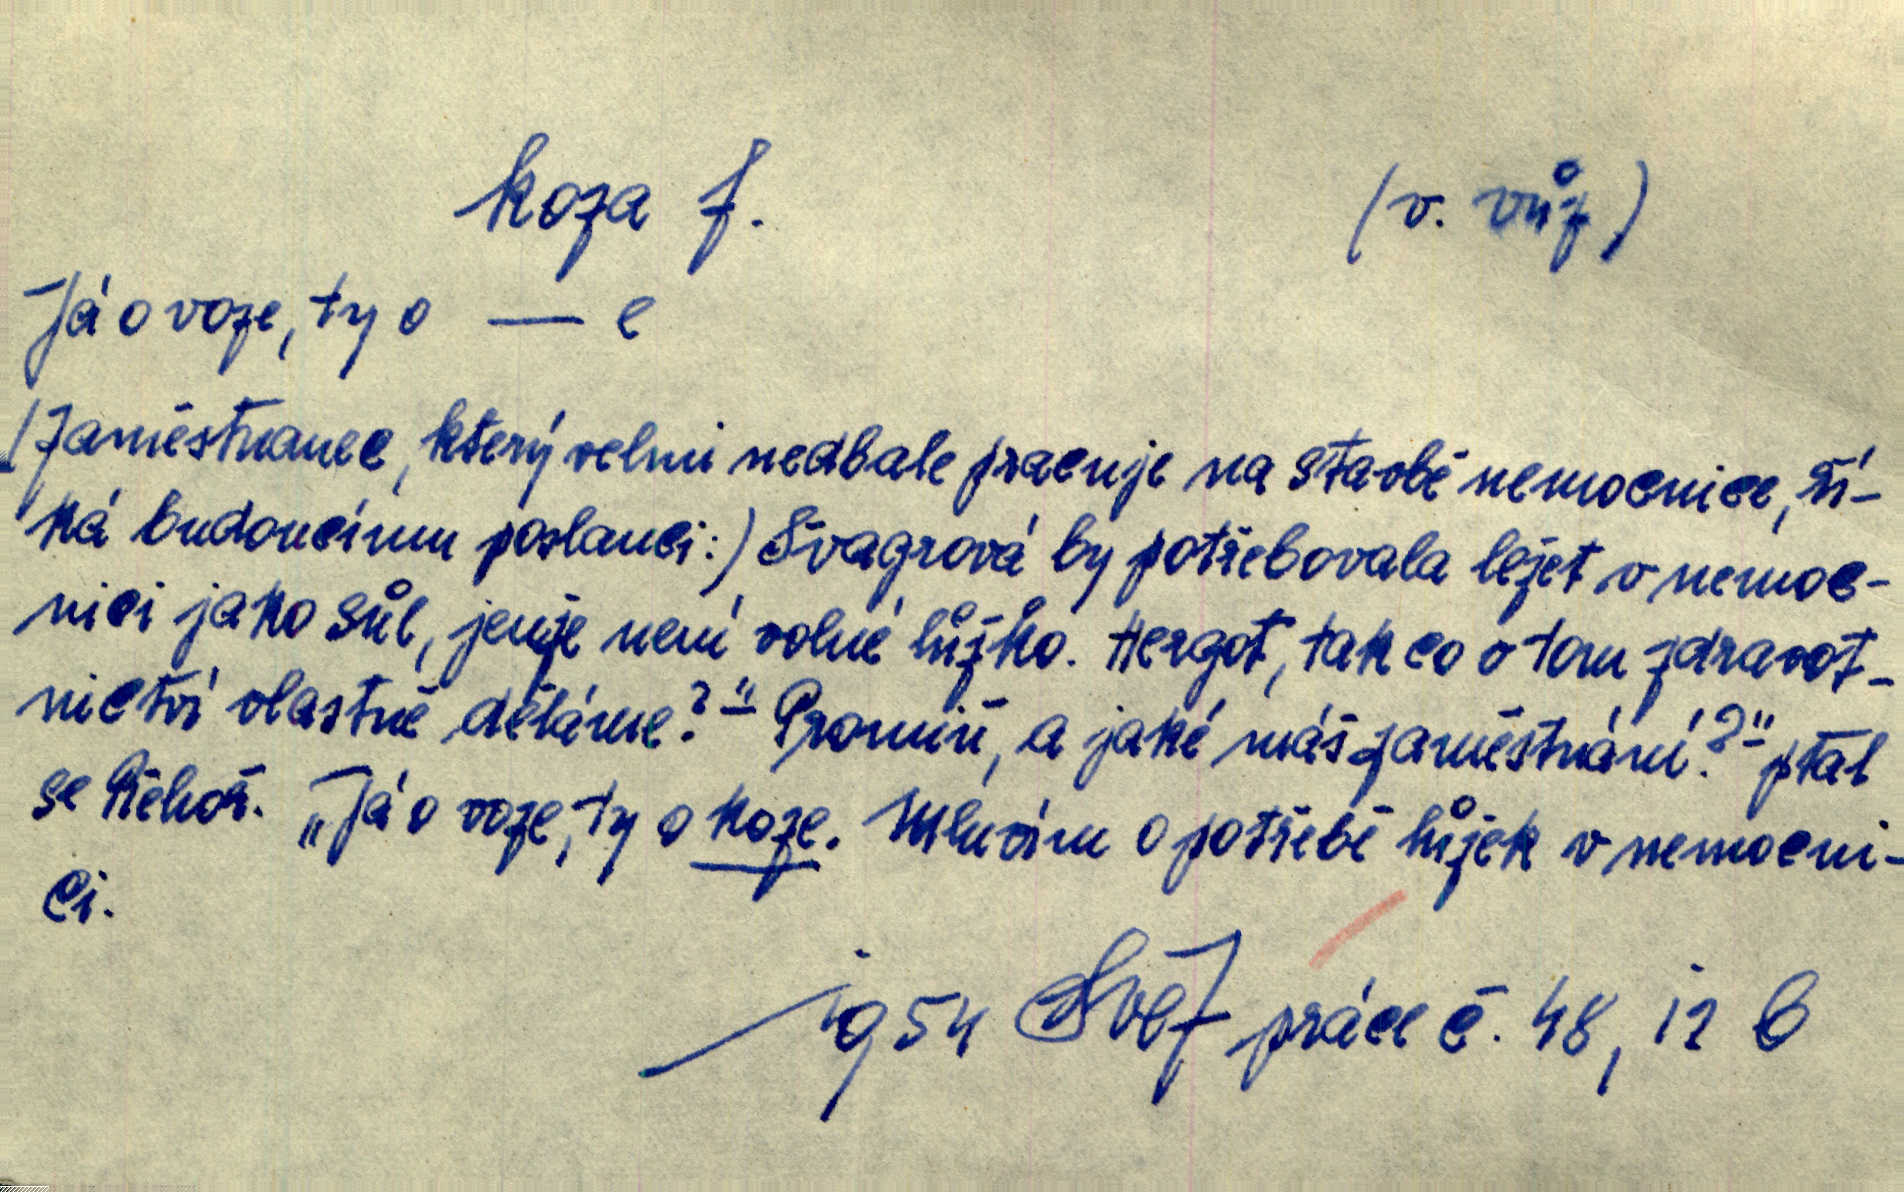 koza f. (v. vůz)
Já o voze, ty o — e
(Zaměstnanec, který velmi nedbale pracuje na stavbě nemocnice, ří-
ká budoucímu poslanci:) Švagrová by potřebovala ležet v nemoc-
nici jako sůl, jenže není volné lůžko. Hergot, tak co v tom zdravot-
nictví vlastně děláme?" – Promiň, a jaké máš zaměstnání?" – ptal
se Řehoř. „Já o voze, ty o koze. Mluvím o potřebě lůžek v nemocni-
ci.
1954 Svět práce č. 48, 12 b